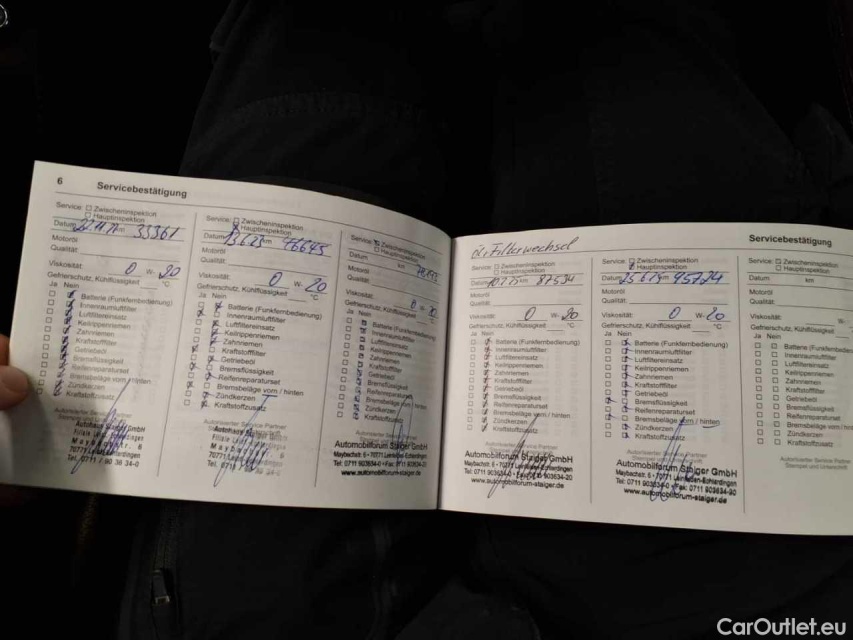 6 Servicebestätigung
Service: Zwischeninspektion
Hauptinspektion
Datum 33361
Motoröl
Qualität:
Viskosität: 0 W- 20
Gefrierschutz, Kühlflüssigkeit °C
Ja Nein
Batterie (Funkfernbedienung)
Innenraumluftfilter
Luftfiltereinsatz
Keilrippenriemen
Zahnriemen
Kraftstofffilter
Getriebeöl
Bremsflüssigkeit
Reifenreparaturset
Bremsbeläge vorn / hinten
Zündkerzen
Kraftstoffzusatz
Autorisierter Service Partner
Service: Zwischeninspektion
Hauptinspektion
Datum 13.6.23 km
Motoröl
Qualität:
Viskosität: 0 W- 20
Gefrierschutz, Kühlflüssigkeit °C
Ja Nein
Batterie (Funkfernbedienung)
Innenraumluftfilter
Luftfiltereinsatz
Keilrippenriemen
Zahnriemen
Kraftstofffilter
Getriebeöl
Bremsflüssigkeit
Reifenreparaturset
Bremsbeläge vorn / hinten
Zündkerzen
Kraftstoffzusatz
Autorisierter Service Partner
Service: Zwischeninspektion
Hauptinspektion
Datum km
Motoröl
Qualität:
Viskosität:
Gefrierschutz, Kühlflüssigkeit
Ja Nein
Batterie (Funkfernbedienung)
Innenraumluftfilter
Luftfiltereinsatz
Keilrippenriemen
Zahnriemen
Kraftstofffilter
Getriebeöl
Bremsflüssigkeit
Reifenreparaturset
Bremsbeläge vorn / hinten
Zündkerzen
Kraftstoffzusatz
Automobilforum Staiger GmbH
Maybachstr. 6 • 70771 Leinfelden-Echterdingen
www.automobilforum-staiger.de
Öl+Filterwechsel
Service: Zwischeninspektion
Hauptinspektion
Datum km 87534
Motoröl
Qualität:
Viskosität: 0 W- 20
Gefrierschutz, Kühlflüssigkeit °C
Ja Nein
Batterie (Funkfernbedienung)
Innenraumluftfilter
Luftfiltereinsatz
Keilrippenriemen
Zahnriemen
Kraftstofffilter
Getriebeöl
Bremsflüssigkeit
Reifenreparaturset
Bremsbeläge vorn / hinten
Zündkerzen
Kraftstoffzusatz
Autorisierter Service Partner
Automobilforum Staiger GmbH
Maybachstr. 6 • 70771 Leinfelden-Echterdingen
Tel: 0711 903634-0 • Fax: 0711 903634-20
www.automobilforum-staiger.de
Service: Zwischeninspektion
Hauptinspektion
Datum km 95724
Motoröl
Qualität:
Viskosität: 0 W- 20
Gefrierschutz, Kühlflüssigkeit °C
Ja Nein
Batterie (Funkfernbedienung)
Innenraumluftfilter
Luftfiltereinsatz
Keilrippenriemen
Zahnriemen
Kraftstofffilter
Getriebeöl
Bremsflüssigkeit
Reifenreparaturset
Bremsbeläge vorn / hinten
Zündkerzen
Kraftstoffzusatz
Autorisierter Service Partner
Automobilforum Staiger GmbH
www.automobilforum-staiger.de
Servicebestätigung
Service: Zwischeninspektion
Hauptinspektion
Datum km
Motoröl
Qualität:
Viskosität:
Gefrierschutz, Kühlflüssigkeit
Ja Nein
Batterie
Innenraumluftfilter
Luftfiltereinsatz
Keilrippenriemen
Zahnriemen
Kraftstofffilter
Getriebeöl
Bremsflüssigkeit
Reifenreparaturset
Bremsbeläge vorn / hinten
Zündkerzen
Kraftstoffzusatz
Autorisierter Service Partner
Stempel und Unterschrift
CarOutlet.eu